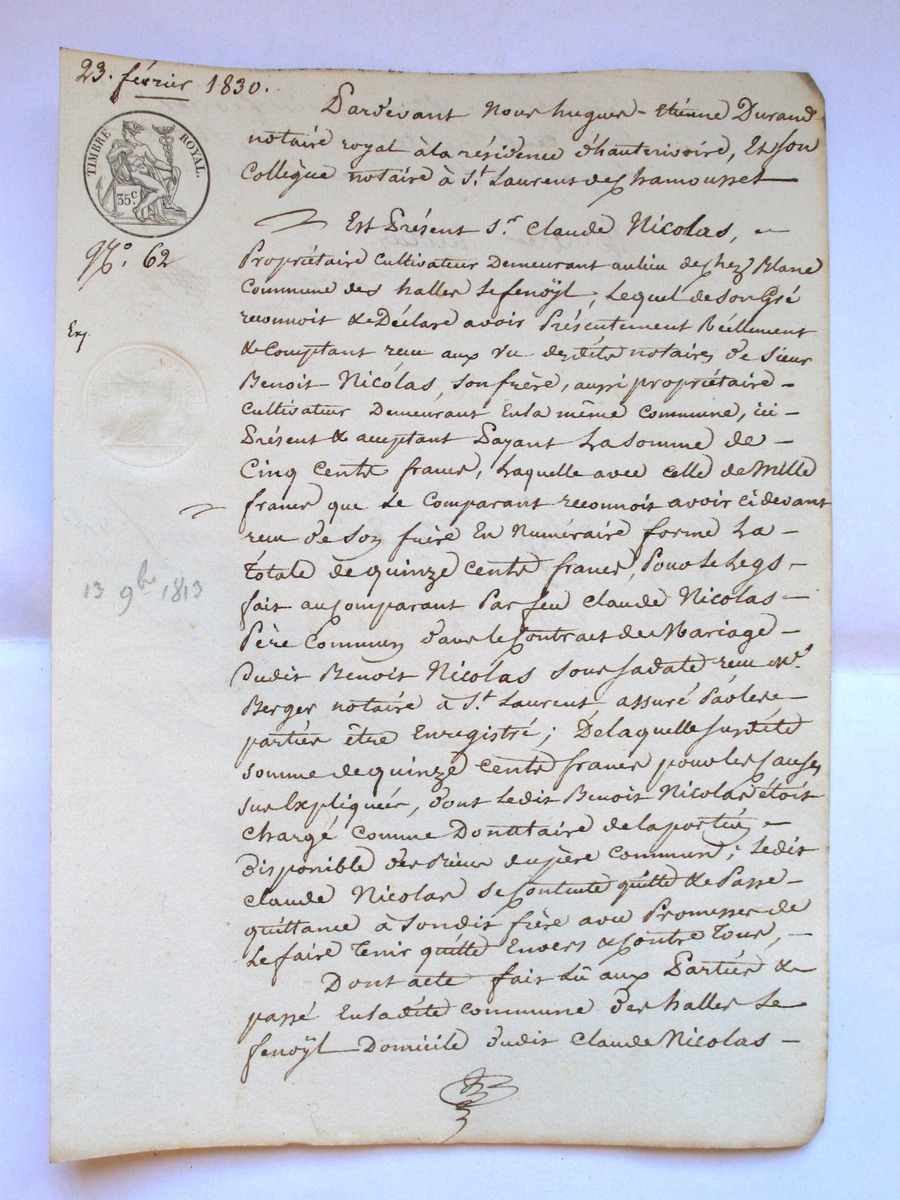 23. février 1830.
TIMBRE ROYAL.
35c
No. 62
Ex.
13 9bre 1813
Pardevant Nous hugues-etienne Durand
notaire royal à la résidence d'hauterivoire, Et son
Collègue notaire à St. Laurent de Chamousset
Est Présent Sr. Claude Nicolas,
Propriétaire Cultivateur Demeurant au lieu de chez Blanc
Commune des halles Le fenoÿl, Lequel de Son Gré
reconnoit & Déclare avoir Présentement Réellement
& Comptant reçu aux vu desdits notaires de Sieur
Benoit Nicolas, Son frère, aussi propriétaire
Cultivateur Demeurant En la même Commune, ici
Présent & acceptant Payant La Somme de
Cinq Cents francs, Laquelle avec Celle de Mille
francs que Le Comparant reconnoit avoir ci devant
reçu de Son frère En Numéraire forme La
Totale de quinze Cents francs, Pour Le Legs
fait au Comparant Par feu Claude Nicolas
Père Commun dans le Contract de Mariage
Dudit Benoit Nicolas Sous Sa date reçu Me.
Berger notaire à St. Laurent, assuré Par les
parties être Enregistré; De laquelle Susdite
Somme de quinze Cents francs pour les Causes
sus Expliquées, dont Ledit Benoit Nicolas étoit
Chargé Comme Donataire de la portion
Disponible des biens du père Commun; Ledit
Claude Nicolas Se Contente quitte & Passe
quittance à Sondit frère avec Promesse de
Le faire Tenir quitte Envers & Contre Tous,
Dont acte fait Lû aux Parties &
passé En ladite Commune des halles Le
fenoÿl Domicile dudit Claude Nicolas